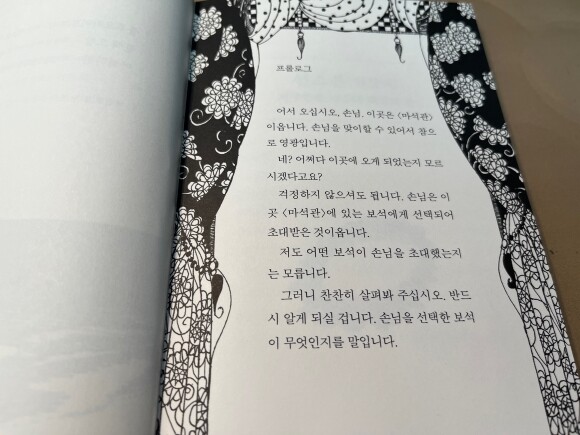 프롤로그
어서 오십시오, 손님. 이곳은 〈마석관〉
이옵니다. 손님을 맞이할 수 있어서 참으
로 영광입니다.
네? 어쩌다 이곳에 오게 되었는지 모르
시겠다고요?
걱정하지 않으셔도 됩니다. 손님은 이
곳 〈마석관〉에 있는 보석에게 선택되어
초대받은 것이옵니다.
저도 어떤 보석이 손님을 초대했는지
는 모릅니다.
그러니 찬찬히 살펴봐 주십시오. 반드
시 알게 되실 겁니다. 손님을 선택한 보석
이 무엇인지를 말입니다.